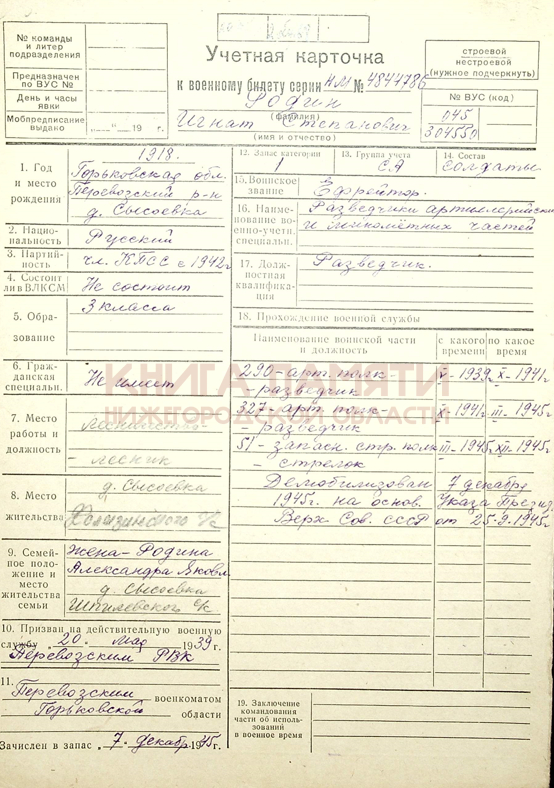 № команды
и литер
подразделения
Предназначен
по ВУС №
День и часы
явки
Мобпредписание
выдано „ “ 19 г.
Учетная карточка
к военному билету серии НМ № 4844786
Родин
(фамилия)
Игнат Степанович
(имя и отчество)
строевой
нестроевой
(нужное подчеркнуть)
№ ВУС (код)
045
304550
1. Год
и место
рождения
1918.
Горьковская обл.
Перевозский р-н
д. Сысоевка
2. Нацио-
нальность
Русский
3. Партий-
ность
чл. КПСС с 1942г
4. Состоит
ли в ВЛКСМ
Не состоит
5. Обра-
зование
3 класса
6. Граж-
данская
специальн.
Не имеет
7. Место
работы и
должность
лесничество-
- лесник
8. Место
жительства
д. Сысоевка
с/с
9. Семей-
ное поло-
жение и
место
жительства
семьи
жена - Родина
Александра Яковл.
д. Сысоевка
Шпилевского с/с
10. Призван на действительную военную
службу „ 20. “ мая 1939 г.
Перевозским РВК
11.
Перевозским военкоматом
Горьковской области
Зачислен в запас „ 7. “ декабр. 1945г.
12. Запас категории
1
13. Группа учета
СА
14. Состав
солдаты
15. Воинское
звание
Ефрейтор.
16. Наиме-
нование во-
енно-учетн.
специальн.
Разведчики артиллерийских
и миномётных частей
17. Долж-
ностная
квалифика-
ция
Разведчик.
18. Прохождение военной службы
Наименование воинской части
и должность
с какого
времени
по какое
время
290 - арт. полк V - 1939 X - 1941г.
- разведчик
327 - арт. полк - X - 1941г. III - 1945г
- разведчик
51 - запасн. стр. полк III - 1945г. XII - 1945г.
- стрелок
Демобилизован 7 декабря
1945г. на основ. Указа Презид.
Верх Сов. СССР от 25.9.1945г.
19. Заключение
командования
части об исполь-
зований
в военное время
КНИГА ПАМЯТИ
НИЖЕГОРОДСКОЙ ОБЛАСТИ